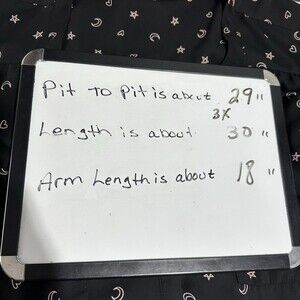 Pit To Pit is about 29"
3X
Length is about 30"
Arm Length is about 18"